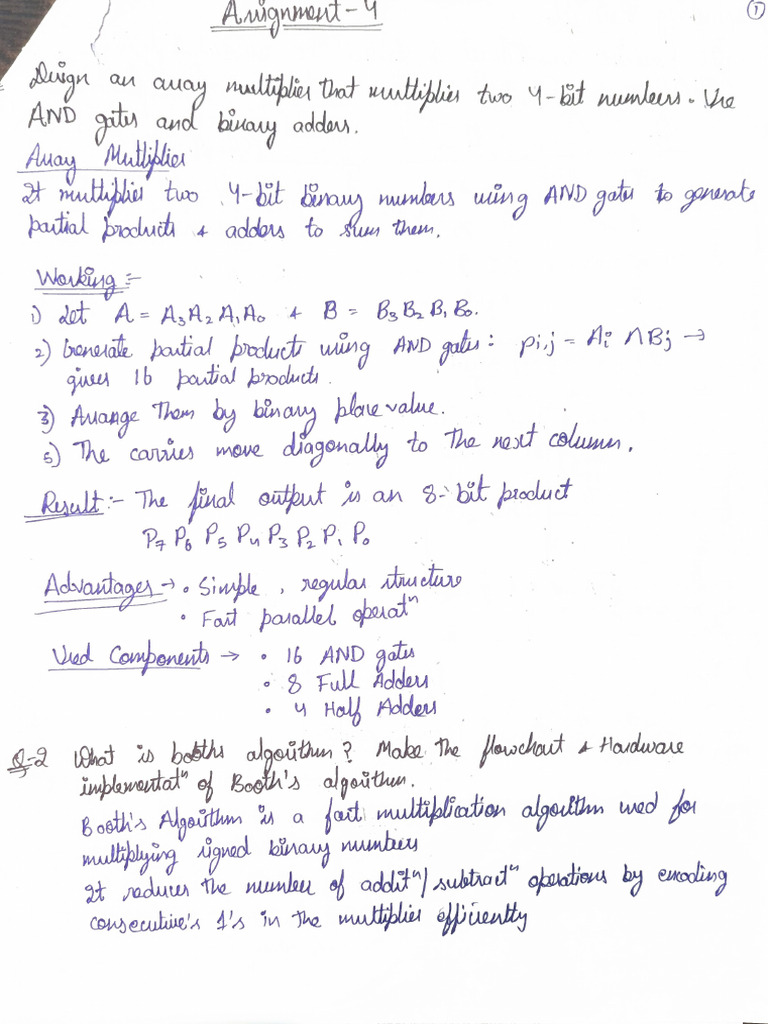 Assignment-4
1
Design an array multiplier that multiplies two 4-bit numbers. Use
AND gates and binary adders.
Array Multiplier
It multiplies two 4-bit binary numbers using AND gates to generate
partial products & adders to sum them.
Working :-
1) Let A = A3 A2 A1 A0 & B = B3 B2 B1 B0.
2) Generate partial products using AND gates: Pi,j = Ai ∩ Bj →
gives 16 partial products.
3) Arrange them by binary place value.
5) The carries move diagonally to the next column.
Result :- The final output is an 8-bit product
P7 P6 P5 P4 P3 P2 P1 P0
Advantages → • Simple, regular structure
• Fast parallel operatⁿ
Used Components → • 16 AND gates
• 8 Full Adders
• 4 Half Adders
Q-2 What is booths algorithm? Make the flowchart & Hardware
implementatⁿ of Booth's algorithm.
Booth's Algorithm is a fast multiplication algorithm used for
multiplying signed binary numbers
It reduces the number of additⁿ/subtractⁿ operations by encoding
consecutive's 1's in the multiplier efficiently